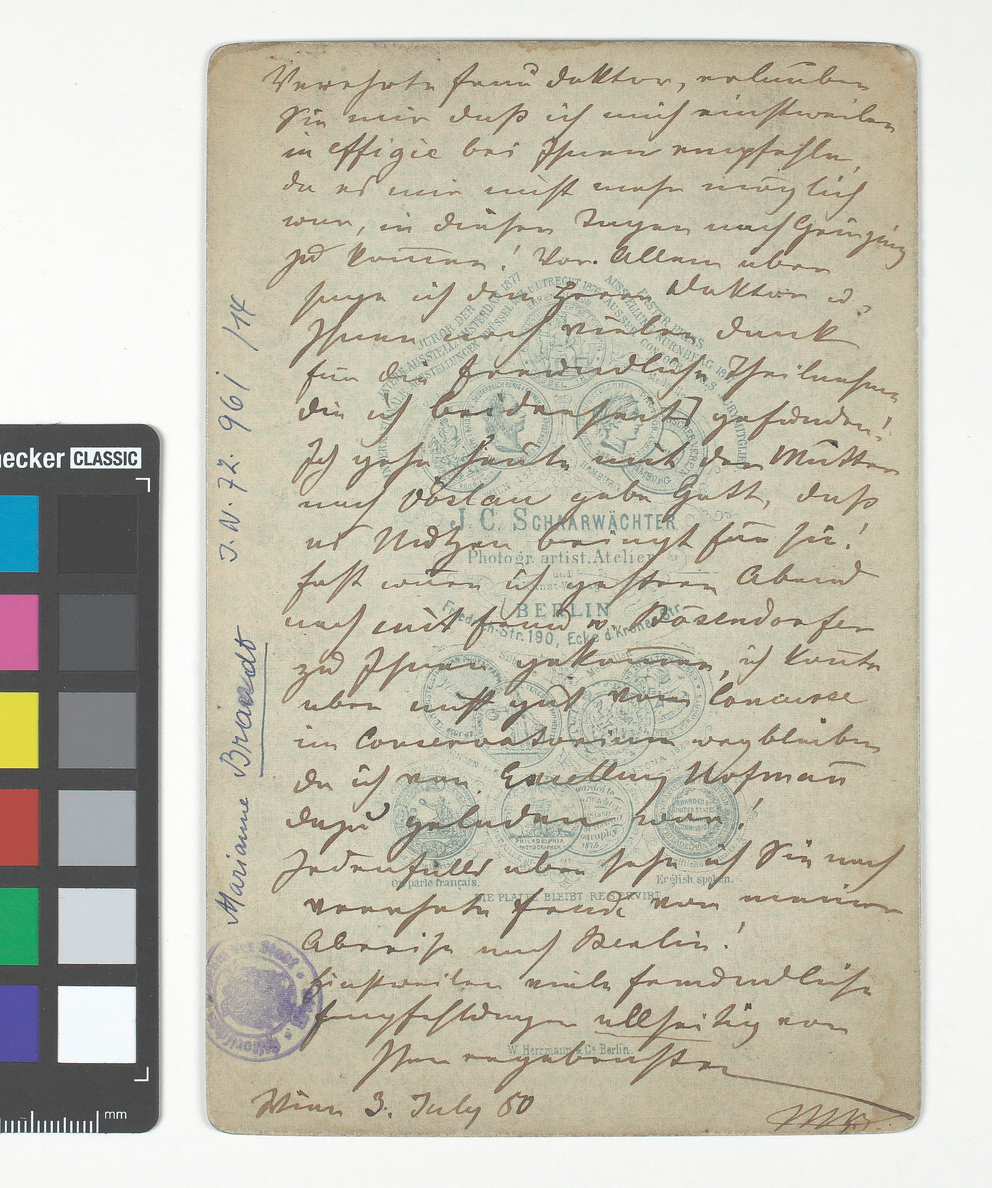 Verehrte Frau Doktor, erlauben
Sie mir daß ich mich einstweilen
in effigie bei Ihnen empfehle,
da es mir nicht mehr möglich
war, in diesen Tagen nach Grinzing
zu kommen! Vor Allem aber
sage ich dem Herrn Doktor u.
Ihnen noch vielen Dank
für die freundliche Theilnahme
die ich beiderseits gefunden!
Ich gehe heute mit der Mutter
nach Vöslau gebe Gott, daß
es Nutzen bringt für sie!
Fast wäre ich gestern Abend
noch mit Frau v. Bösendorfer
zu Ihnen gekommen, ich konnte
aber nicht gut vom Concurse
im Conservatorium wegbleiben
da ich von Excellenz Hofmann
dazu geladen war!
Jedenfalls aber sehe ich Sie noch
verehrte Frau vor meiner
Abreise nach Berlin!
Einstweilen viele freundliche
Empfehlungen allseitig von
Ihrer ergebensten
Wien 3. July 80
MB.
Marianne Brandt
J.N. 72.961 /14
J. C. SCHAARWÄCHTER
Photogr. artist. Atelier
und
BERLIN
Friedrich-Str. 190, Ecke d. Kronen Str.
On parle français.
English spoken.
DIE PLATTE BLEIBT RESERVIRT.
W. Herrmann & Co Berlin.
PHILADELPHIA
ecker CLASSIC
mm